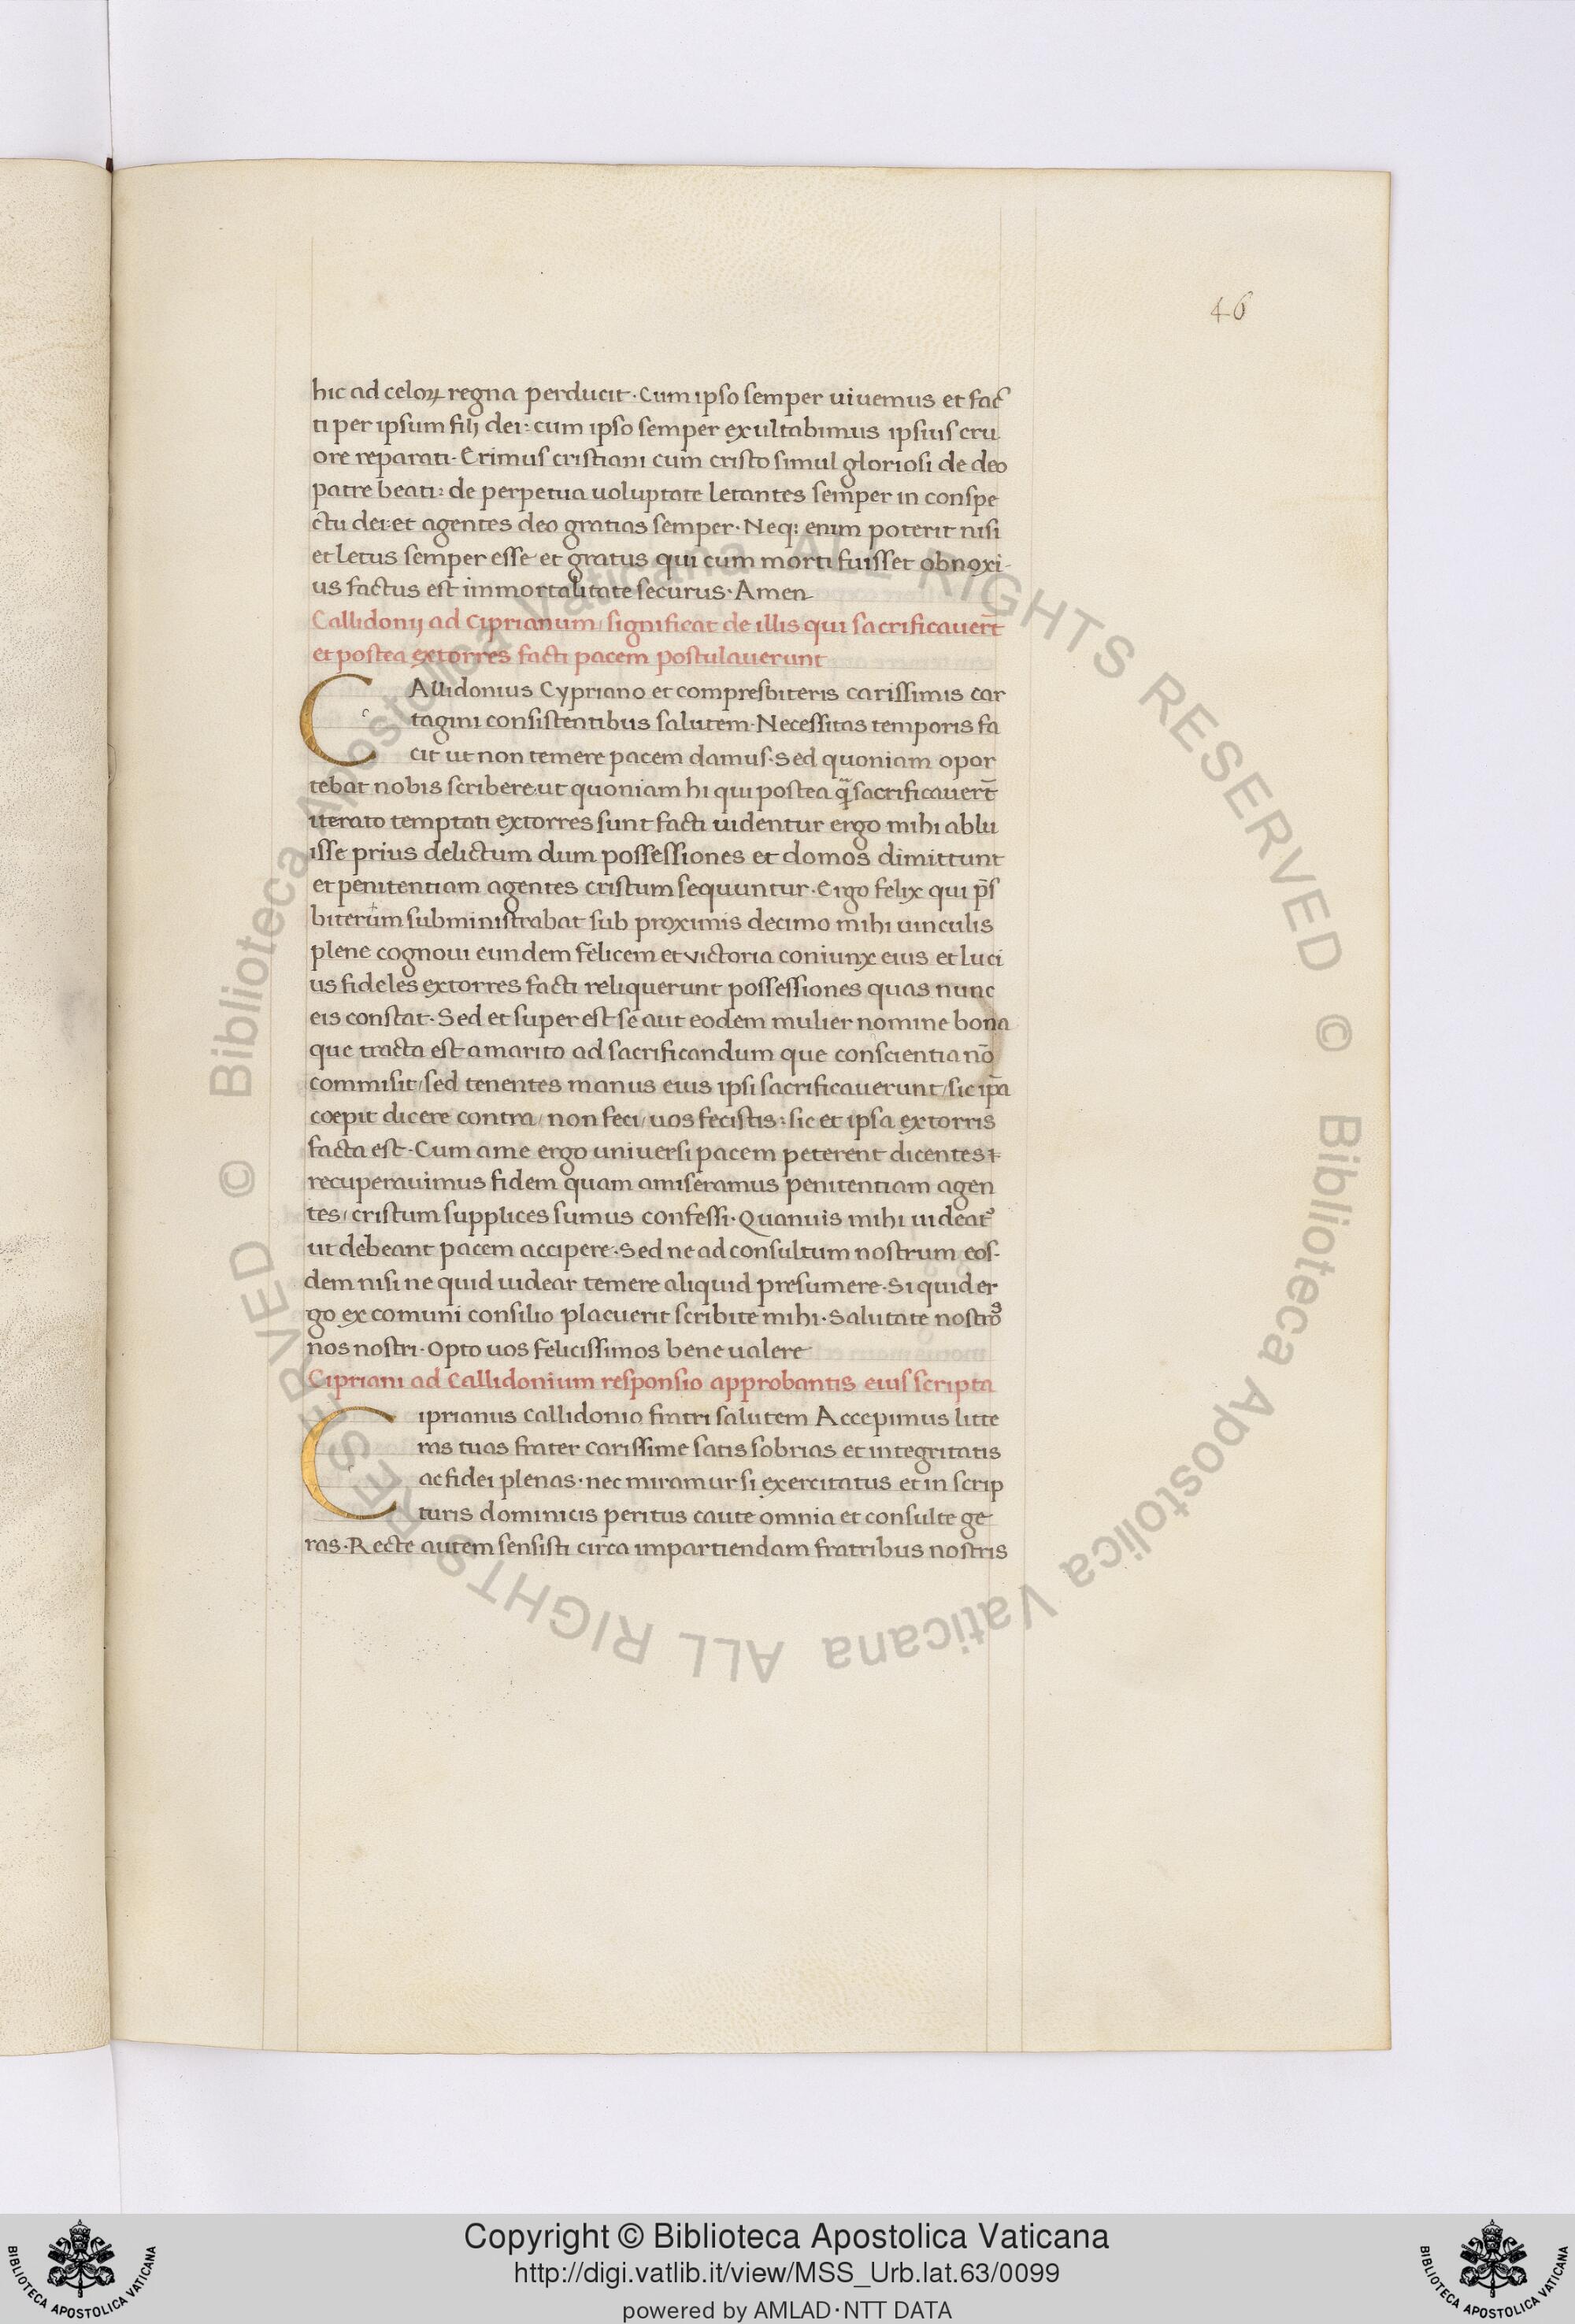 46
hic ad celoꝝ regna perducit · Cum ipso semper uiuemus et fac̄
ti per ipsum filij dei: cum ipso semper exultabimus ipsius cru
ore reparati · Erimus cristiani cum cristo simul gloriosi de deo
patre beati: de perpetua uoluptate letantes semper in conspe
ctu dei: et agentes deo gratias semper · Neq: enim poterit nisi
et letus semper esse et gratus qui cum morti fuisset obnoxi-
us factus est immortalitate securus · Amen
Callidonij ad Ciprianum / significat de illis qui sacrificauert̄
et postea extorres facti pacem postulauerunt
CAllidonius Cypriano et compresbiteris carissimis car
tagini consistentibus salutem · Necessitas temporis fa
cit ut non temere pacem damus · Sed quoniam opor
tebat nobis scribere ut quoniam hi qui postea q̄ sacrificauert̄
iterato temptati extorres sunt facti uidentur ergo mihi ablu
isse prius delictum dum possessiones et domos dimittunt
et penitentiam agentes cristum sequuntur · Ergo felix qui p̄s
biterum subministrabat sub proximis decimo mihi uinculis
plene cognoui eundem felicem et victoria coniunx eius et luci
us fideles extorres facti reliquerunt possessiones quas nunc
eis constat · Sed et super est se aut eodem mulier nomine bona
que tracta est a marito ad sacrificandum que conscientia nō
commisit / sed tenentes manus eius ipsi sacrificauerunt / sic ip̄a
coepit dicere contra / non feci / uos fecistis: sic et ipsa extorris
facta est · Cum a me ergo uniuersi pacem peterent dicentes:
recuperauimus fidem quam amiseramus penitentiam agen
tes / cristum supplices sumus confessi · Quanuis mihi uideat᷒
ut debeant pacem accipere · Sed ne ad consultum nostrum eos-
dem nisi ne quid uidear temere aliquid presumere · Si quid er
go ex comuni consilio placuerit scribite mihi · Salutate nostros
nos nostri · Opto uos felicissimos bene ualere
Cipriani ad Callidonium responsio approbantis eius scripta
Ciprianus Callidonio fratri salutem Accepimus litte
ras tuas frater carissime satis sobrias et integritatis
ac fidei plenas · nec miramur si exercitatus et in scrip
turis dominicis peritus caute omnia et consulte ge
ras · Recte autem sensisti circa impartiendam fratribus nostris
© Biblioteca Apostolica Vaticana ALL RIGHTS RESERVED © Biblioteca Apostolica Vaticana ALL RIGHTS RESERVED
BIBLIOTECA APOSTOLICA VATICANA
Copyright © Biblioteca Apostolica Vaticana
http://digi.vatlib.it/view/MSS_Urb.lat.63/0099
powered by AMLAD·NTT DATA
BIBLIOTECA APOSTOLICA VATICANA